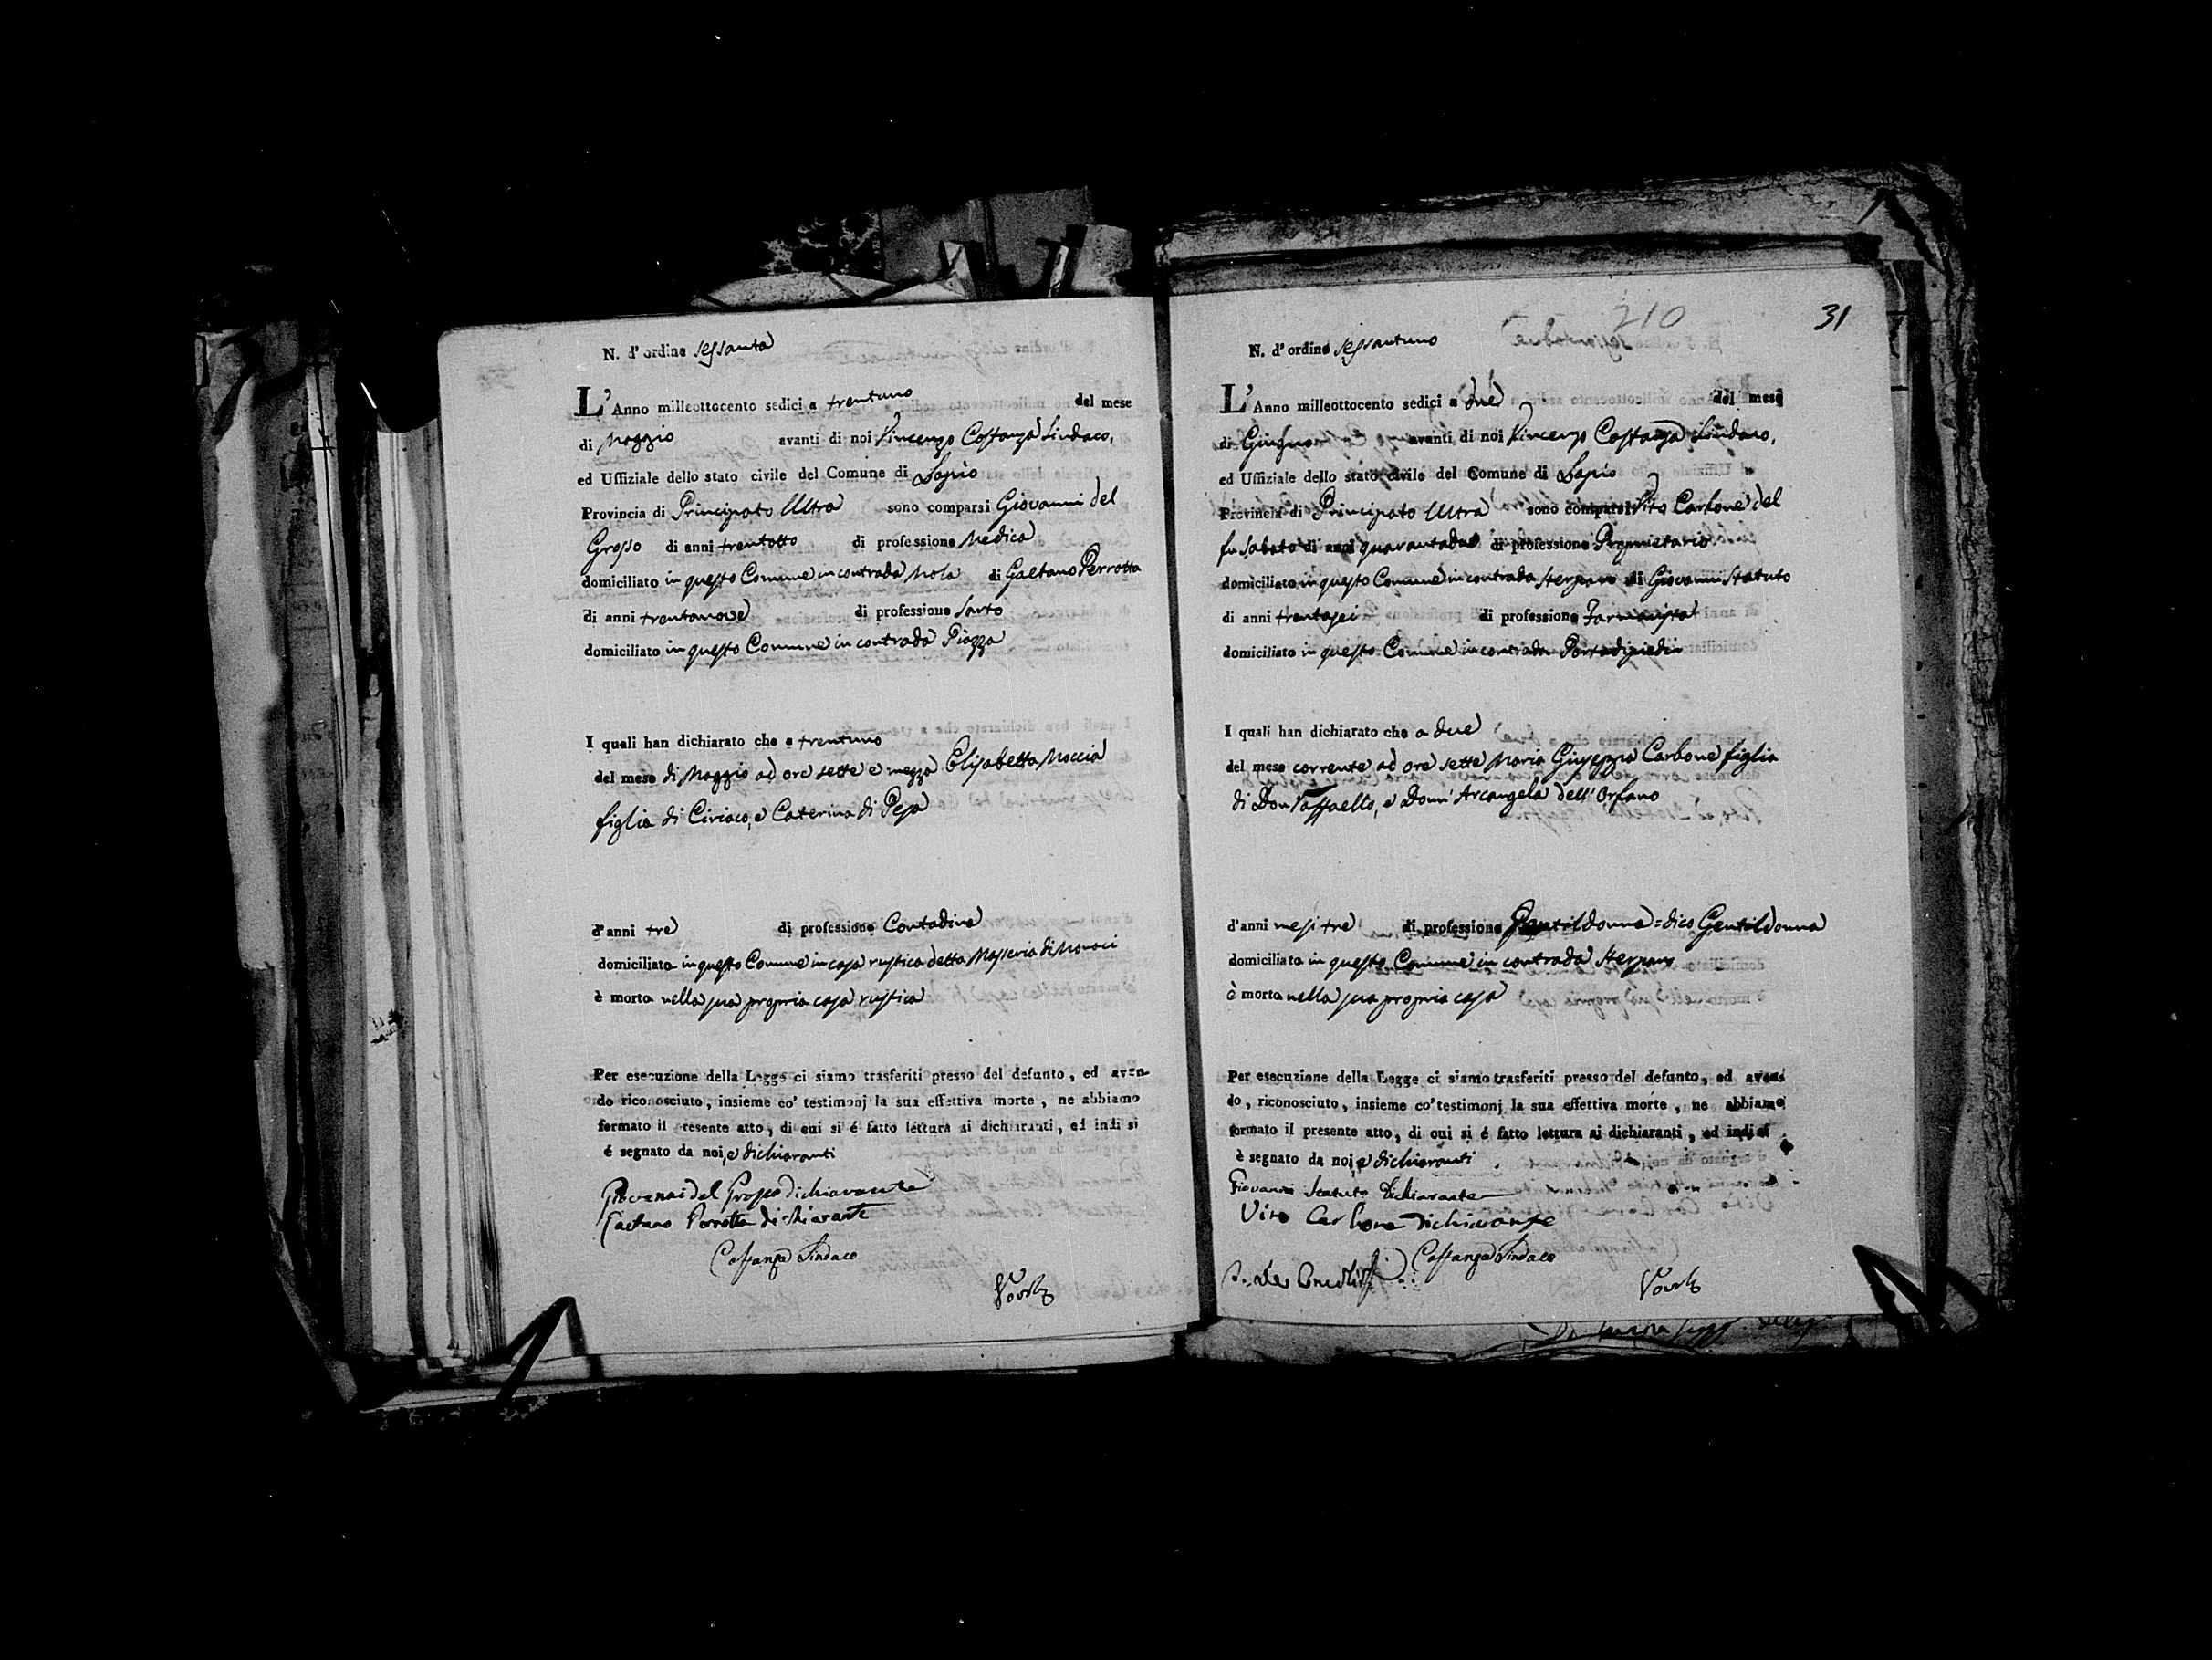 N. d' ordine sessanta
L' Anno milleottocento sedici a trentuno del mese
di Maggio avanti di noi Vincenzo Costanza Sindaco,
ed Uffiziale dello stato civile del Comune di Lapio
Provincia di Principato Ultra sono comparsi Giovanni del
Grosso di anni trentotto di professione Medico
domiciliato in questo Comune in contrada Mola di Gaetano Perrotta
di anni trentanove di professione Sarto
domiciliato in questo Comune in contrada Piazza
I quali han dichiarato che a trentuno
del mese di Maggio ad ore sette e mezza Elisabetta Moccia
figlia di Ciriaco, e Caterina di Pesa
d'anni tre di professione Contadina
domiciliata in questo Comune in casa rustica detta Masseria di Monaci
è morta nella sua propria casa rustica
Per esecuzione della Legge ci siamo trasferiti presso del defunto, ed aven-
do riconosciuto, insieme co' testimonj la sua effettiva morte, ne abbiamo
formato il presente atto, di cui si é fatto lettura ai dichiaranti, ed indi si
é segnato da noi, e dichiaranti
Giovanni del Grosso dichiarante
Gaetano Perrotta dichiarante
Costanza Sindaco
210
31
N. d' ordine sessantuno
L' Anno milleottocento sedici a due del mese
di Giugno avanti di noi Vincenzo Costanza Sindaco,
ed Uffiziale dello stato civile del Comune di Lapio
Provincia di Principato Ultra sono comparsi Vito Carbone del
fu Sabato di anni quarantadue di professione Proprietario
domiciliato in questo Comune in contrada Sterparo di Giovanni Statuto
di anni trentasei di professione Farmacista
domiciliato in questo Comune in contrada
I quali han dichiarato che a due
del mese corrente ad ore sette Maria Giuseppa Carbone figlia
di Don Raffaello, e Donn' Arcangela dell' Orfano
d'anni mesi tre di professione Gentildonna = dico Gentildonna
domiciliata in questo Comune in contrada Sterparo
è morta nella sua propria casa
Per esecuzione della Legge ci siamo trasferiti presso del defunto, ed aven-
do, riconosciuto, insieme co' testimonj la sua effettiva morte, ne abbiamo
formato il presente atto, di cui si é fatto lettura ai dichiaranti, ed indi si
è segnato da noi, e dichiaranti
Giovanni Statuto dichiarante
Vito Carbone dichiarante
Costanza Sindaco